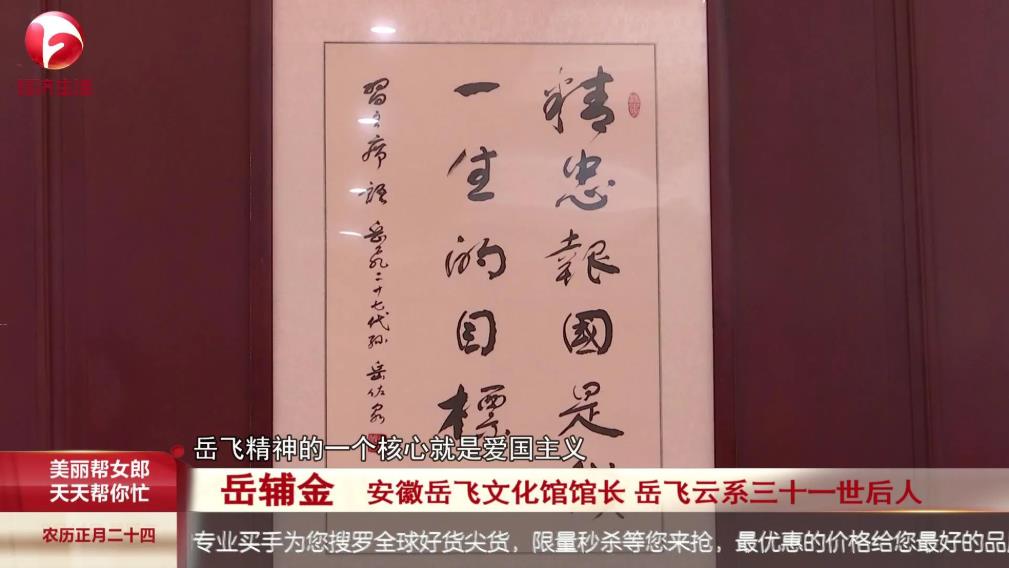 经济生活
精忠報國是
一生的目標
習主席語 岳飛二十七代孫 岳佐
岳飞精神的一个核心就是爱国主义
美丽帮女郎
天天帮你忙
农历正月二十四
岳辅金 安徽岳飞文化馆馆长 岳飞云系三十一世后人
专业买手为您搜罗全球好货尖货，限量秒杀等您来抢，最优惠的价格给您最好的品